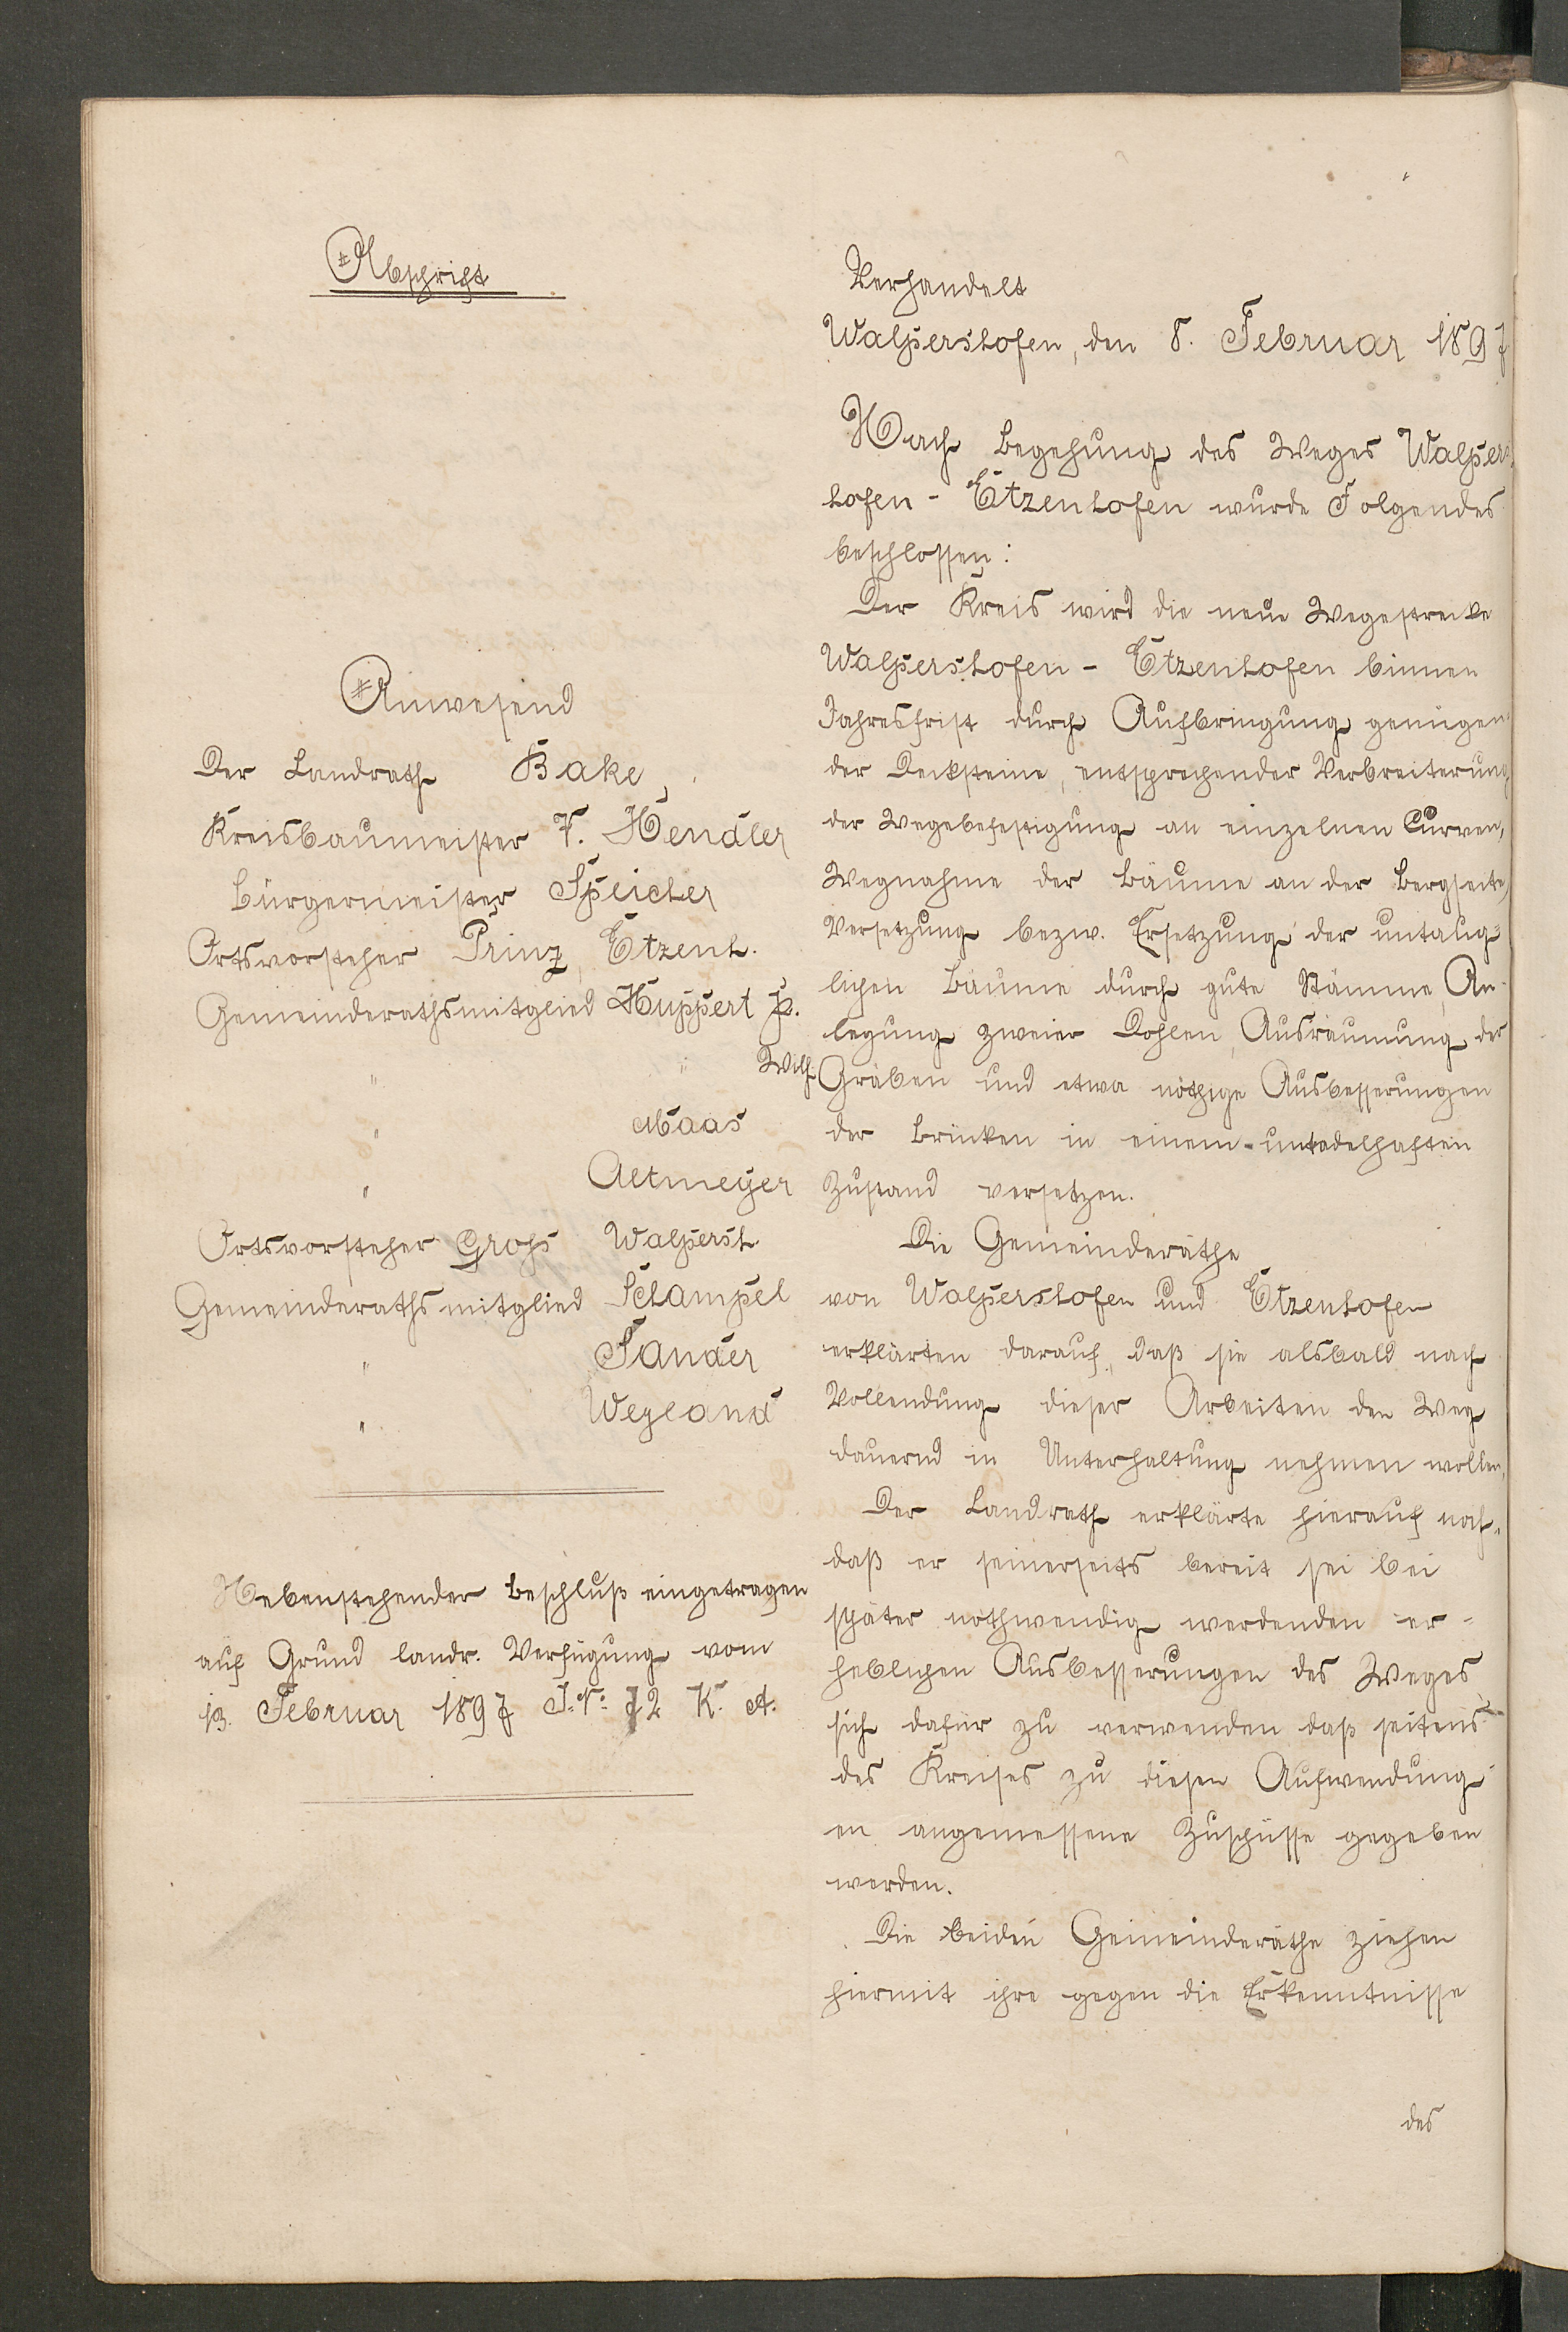 Abschrift
Anwesend
Der Landrath Bake,
Kreisbaumeister F. Hendler
Bürgermeister Speicher
Ortsvorsteher Prinz, Etzenh.
Gemeinderathsmitglied Huppert P.
" " Wilh.
" Maas
" Altmeyer
Ortsvorsteher Groß Walpersh.
Gemeinderathsmitglied Schampel
" Sander
" Weyland
Nebenstehender Beschluß eingetragen
auf Grund landr. Verfügung vom
13. Februar 1897 J. N: 72 K. A.
Verhandelt
Walpershofen, den 8. Februar 1897
Nach Begehung des Weges Walpers-
hofen - Etzenhofen wurde Folgendes
beschlossen:
Der Kreis wird die neue Wegestrecke
Walpershofen - Etzenhofen binnen
Jahresfrist durch Aufbringung genügen-
der Decksteine, entsprechender Verbreiterung
der Wegebefestigung an einzelnen Curven,
Wegnahme der Bäume an der Bergseite,
Versetzung bezw. Ersetzung der untaug-
lichen Bäume durch gute Stämme, An-
legung zweier Dohlen, Ausräumung der
Gräben und etwa nöthige Ausbesserungen
der Brücken in einem untadelhaften
Zustand versetzen.
Die Gemeinderäthe
von Walpershofen und Etzenhofen
erklärten darauf, daß sie alsbald nach
Vollendung dieser Arbeiten den Weg
dauernd in Unterhaltung nehmen wollen.
Der Landrath erklärte hierauf noch,
daß er seinerseits bereit sei bei
später nothwendig werdenden er-
heblichen Ausbesserungen des Weges
sich dafür zu verwenden daß seitens
des Kreises zu diesen Aufwendung-
en angemessene Zuschüsse gegeben
werden.
Die beiden Gemeinderäthe ziehen
hiermit ihre gegen die Erkenntnisse
des